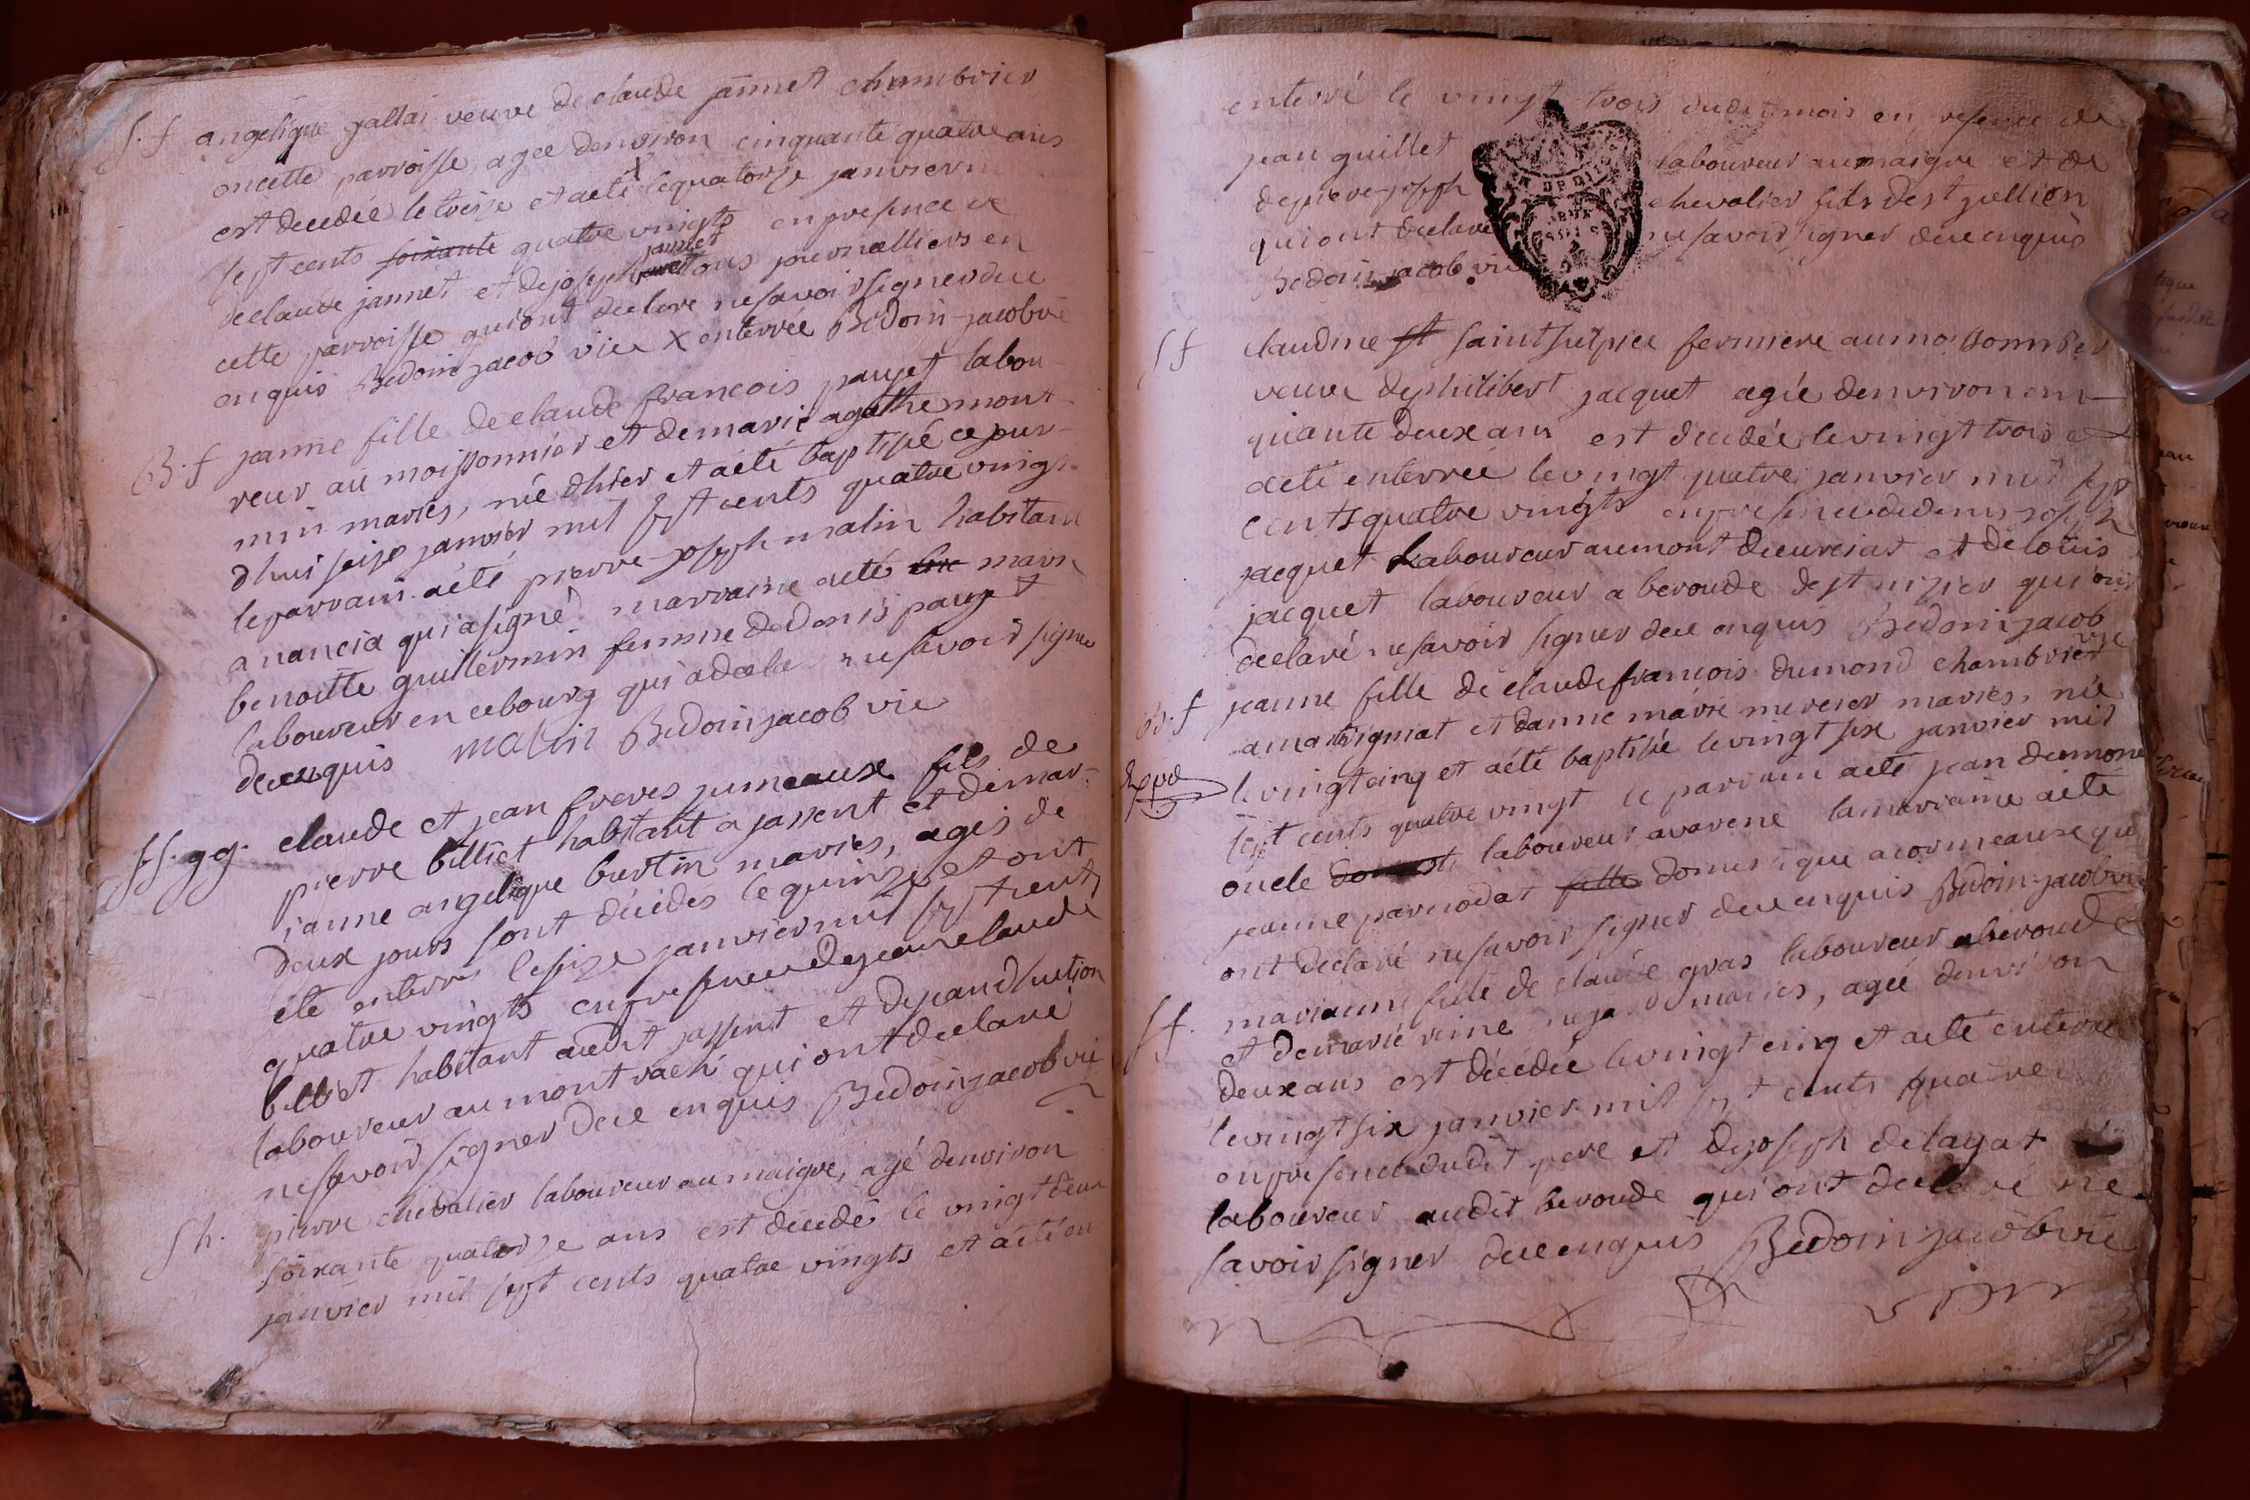 S. f angelique gallai veuve de claude jannet chambrier
en cette parroisse, agée denviron cinquante quatre ans
est decedée le treize et aeté X le quatorze janvier m
sept cents soixante quatre vingts en presence de
de claude jannet et de joseph jannet tous journalliers en
cette parroisse qui ont declare ne savoir signer de ce
enquis Bedoin jacob vic X enterrée Bedoin jacob vic
B. f jeanne fille de claude francois panget labou-
reur au moissonnier et de marie agathe mont-
min mariés, née d'hier et aété baptisée ce jour-
d'hui seize janvier mil sept cents quatre vingt
le parrain aété pierre joseph malin habitant
a nancia qui a signé marraine aeté marie
benoitte guillermin femme de denis panget
laboureur en ce bourg qui a decla ne savoir signer
de ce enquis malin Bedoin jacob vic
ff. gg. claude et jean freres jumeaux fils de
pierre billiet habitant a jassent et de mar-
ianne angelique burtin mariés, agés de
deux jours sont décédés le quinze et ont
été enterré le seize janvier mil sept cents
quatre vingts en presence de jean claude
billiet habitant audit jassent et de jean
laboureur au mont qui ont declaré
ne savoir signer de ce enquis Bedoin jacob vic
S h. pierre chevalier laboureur au maigre, agé denviron
soixante quatorze ans est decedé le vingt deux
janvier mil sept cents quatre vingts et aété en
enterré le vingt trois dudit mois en presence de
jean guillet laboureur au maigre et de
de pierre joseph chevalier fils de st jullien
qui ont declaré ne savoir signer de ce enquis
Bedoin jacob vic
S f claudine st saint sulpice fermiere au moissonnier
veuve de philibert jacquet agée denviron cin-
quante deux ans est décedée le vingt trois et
aeté enterrée le vingt quatre janvier mil sept
cents quatre vingts en presence de denis joseph
jacquet laboureur au mont de curciat et de louis
jacquet laboureur a beroude de st nizier qui ont
declaré ne savoir signer de ce enquis Bedoin jacob
vic
B. f jeanne fille de claude françois dumond chambrier
a marsigniat et danne marie mercier mariés, née
le vingt cinq et aété baptisée le vingt six janvier mil
sept cents quatre vingt le parrain aeté jean dumond
oncle laboureur a varene la marraine aété
jeanne parnodat fille domestique a cormeaux qui
ont declaré ne savoir signer de ce enquis Bedoin jacob vic
S f. marianne fille de claude gras laboureur a beroude
et de marie reine mariés, agée denviron
deux ans est décédée le vingt cinq et aété enterrée
le vingt six janvier mil sept cents quatre
en presence dudit pere et de joseph delayat
laboureur audit beroude qui ont declare ne
savoir signer de ce enquis Bedoin jacob vic